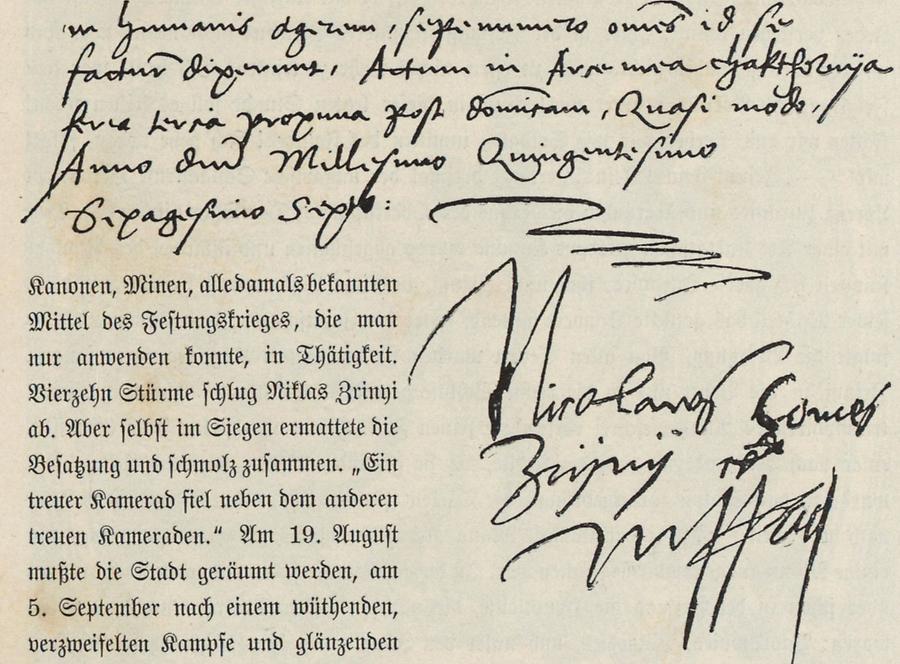 in humanis agerem, sepenumero om̄es id se
facturū dixerunt, Actum in Arce mea Chakthornya
feria tercia proxima post domīcam, Quasi modo,
Anno dnī Millesimo Quingentesimo
Sexagesimo Sexto:
Nicolaus Comes
Zrijnij
Kanonen, Minen, alle damals bekannten
Mittel des Festungskrieges, die man
nur anwenden konnte, in Thätigkeit.
Vierzehn Stürme schlug Niklas Zrinyi
ab. Aber selbst im Siegen ermattete die
Besatzung und schmolz zusammen. „Ein
treuer Kamerad fiel neben dem anderen
treuen Kameraden.“ Am 19. August
mußte die Stadt geräumt werden, am
5. September nach einem wüthenden,
verzweifelten Kampfe und glänzenden